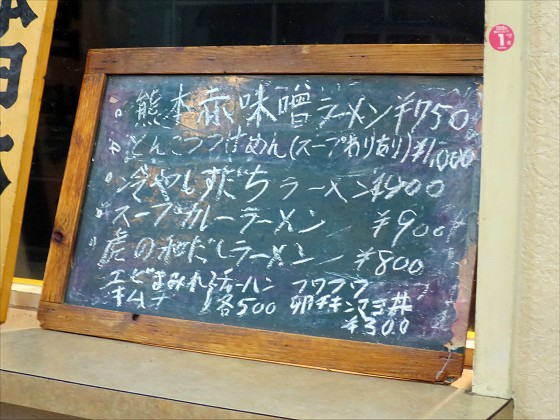 熊本赤味噌ラーメン ¥750
とんこつつけめん(スープわりあり)¥1,000
冷やしすだちラーメン ¥900
スープカレーラーメン ¥900
虎の地だしラーメン ¥800
エビまみれチャーハン フワフワ
キムチ 各500 卵チキンマヨ丼
¥300
1